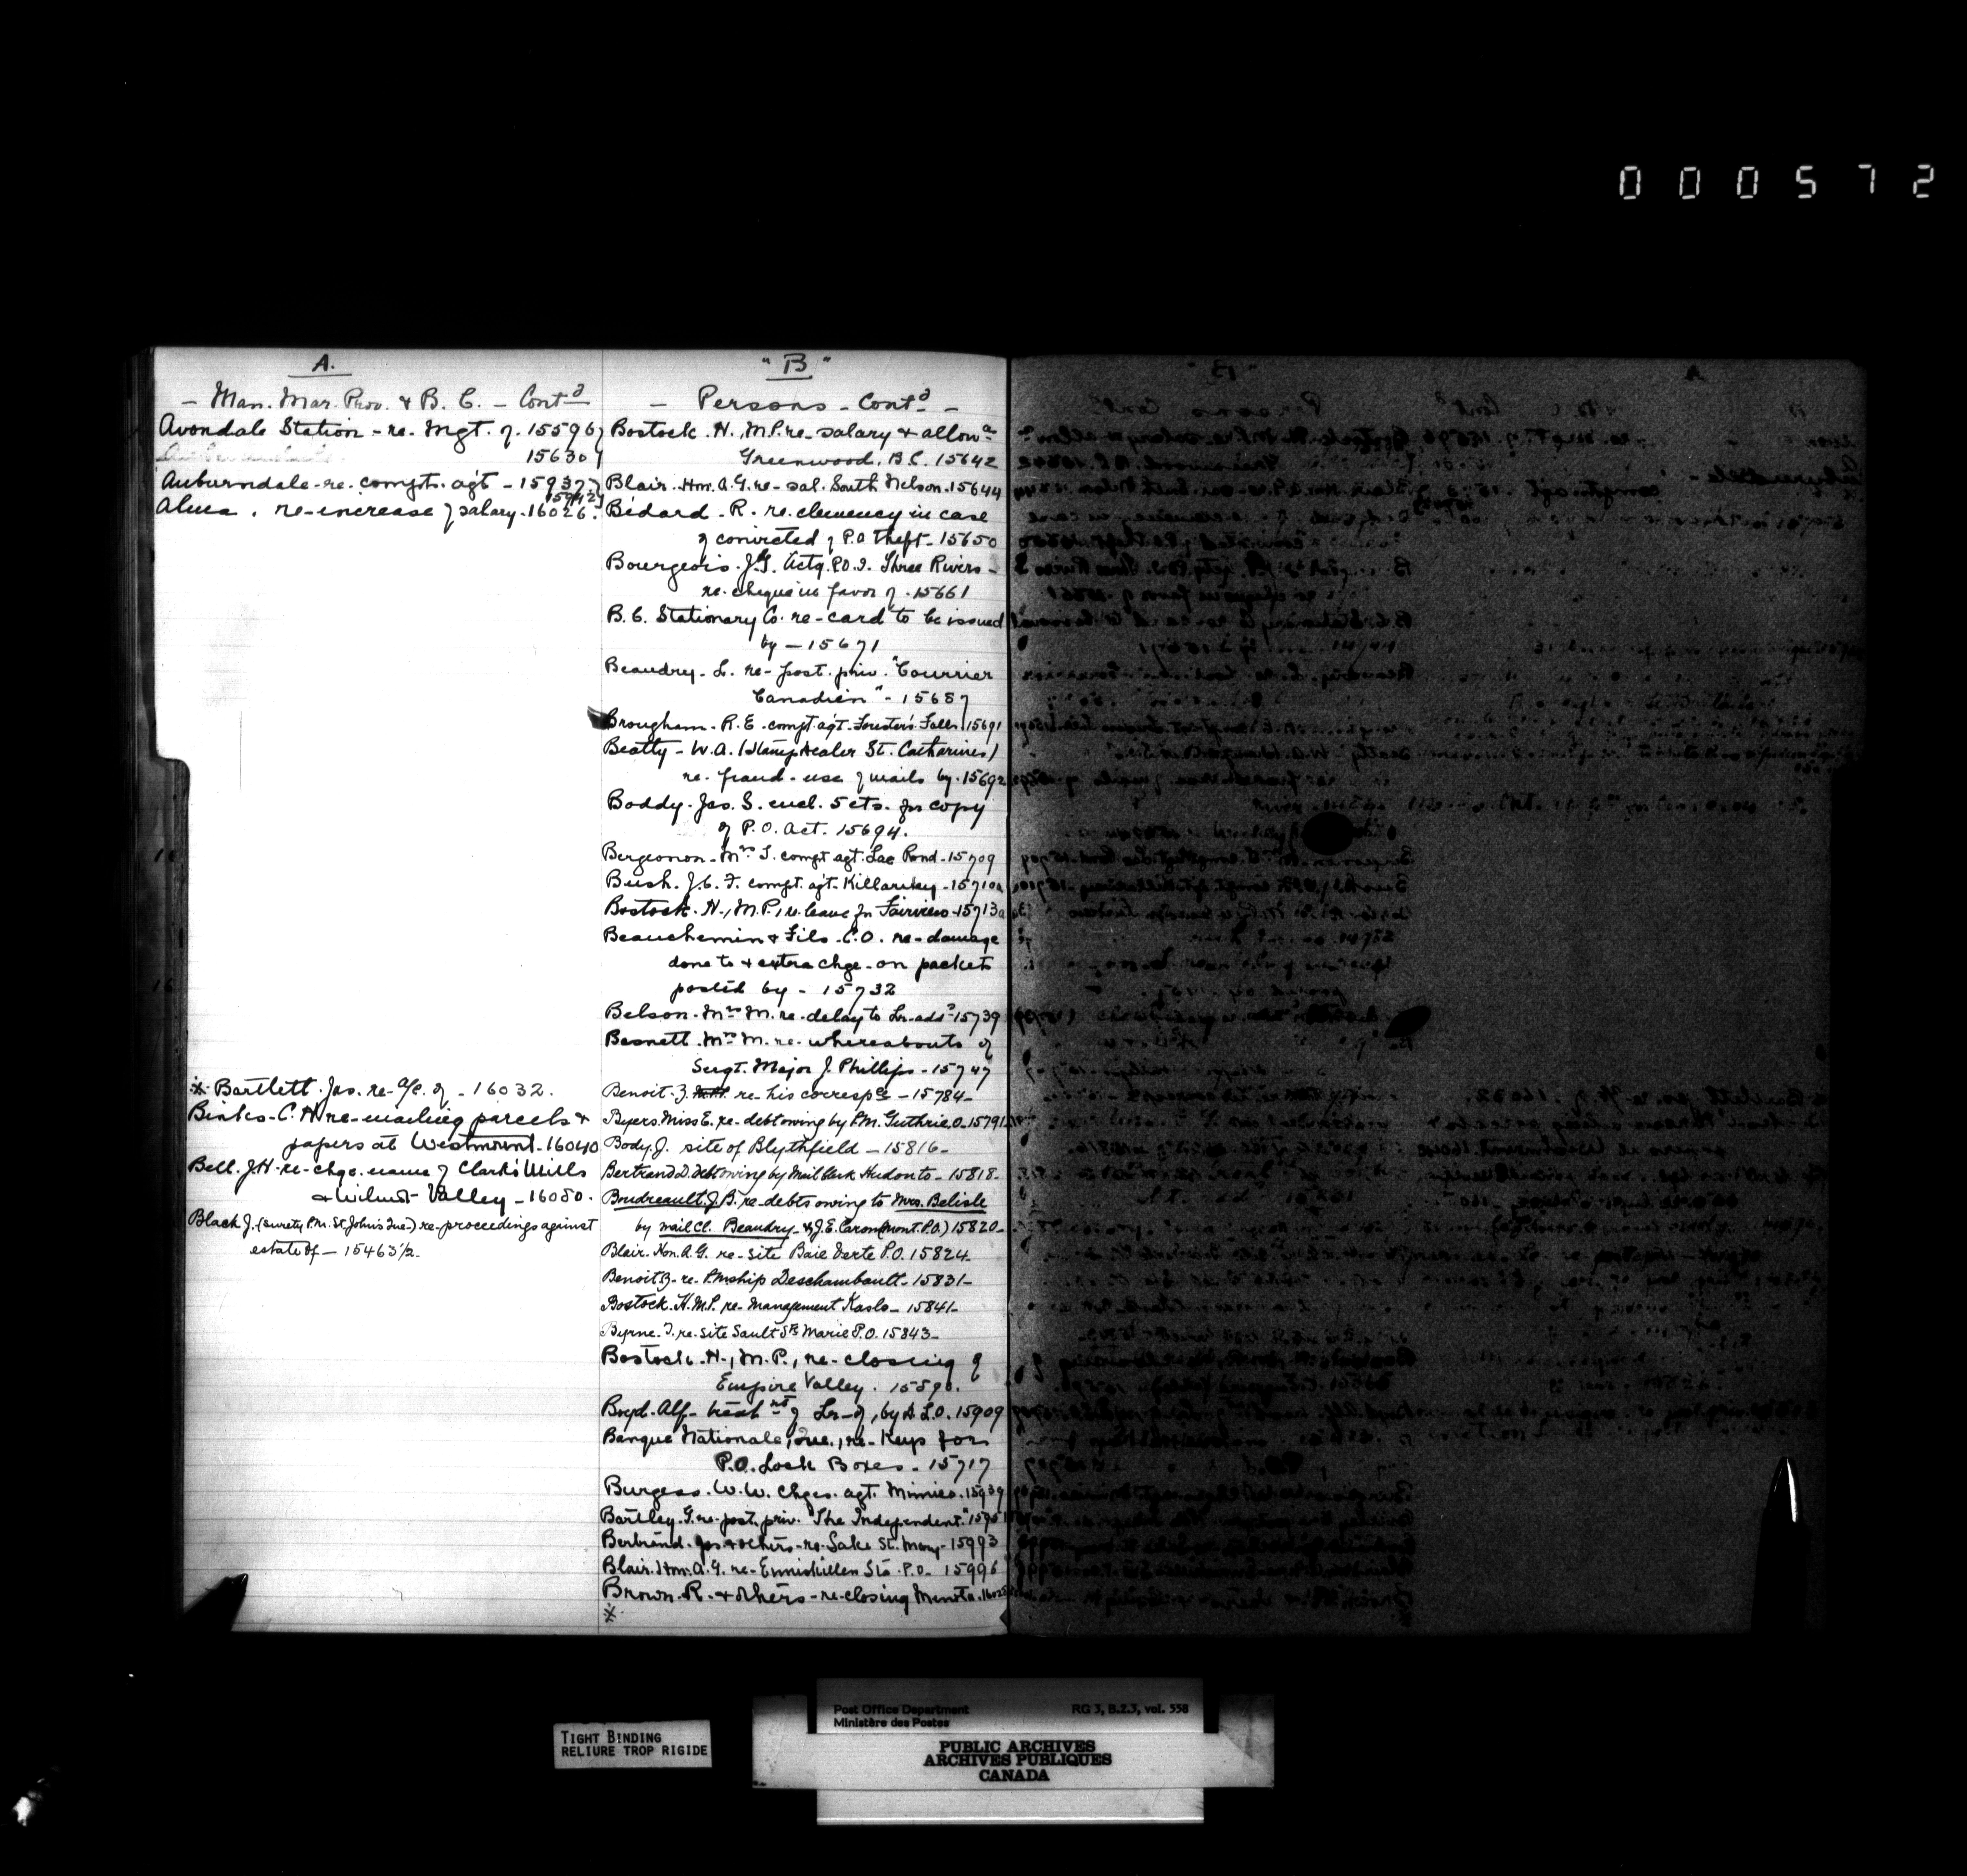 000572
A.
- Man. Mar. Prov. & B. C. - Contd
Avondale Station - re. Mgt. of. 15596
15630
Auburndale - re. compts. agt - 15937
15942
Alma. re-increase of salary - 16026.
* Bartlett. Jas. re- a/c. of - 16032.
Binks - C. H. re-mailing parcels &
papers at Westmount - 16040
Bell. J. H - re-chge. name of Clark's Mills
& Wilmot Valley - 16050.
Black J. (surety P.M. St. John's Que.) re-proceedings against
estate of - 15463 1/2.
"B"
- Persons - Contd -
Bostock. H., M.P. re-salary & allowce
Greenwood. B.C. 15642
Blair. Hon. A. G. re- sal. South Nelson. 15644
Bédard - R. re. clemency in case
of convicted of P.O theft - 15650
Bourgeois. J. G. Actg. P.O.I. Three Rivers -
re. cheque in favor of. 15661
B. C. Stationary Co. re-card to be issued
by - 15671
Beaudry - L. re- post. priv. "Courrier
Canadien" - 15687
Brougham - R. E. - compt. agt. Forester's Falls. 15691
Beatty - W. A. (Stamp dealer St. Catharines)
re- fraud - use of mails by. 15692
Boddy. Jas. S. encl. 5 cts. for copy
of P.O. Act. 15694.
Bergeonon - Mrs. compt. agt. Lac Pond - 15709
Bush. J. C. F. compt. agt. Killarney - 15710a
Bostock. H., M.P., re. leave for Fairview - 15713a
Beauchemin & Fils - C.O. re-damage
done to & extra chge - on packets
posted by - 15732
Belson - Mrs M. re-delay to Lr-adsd 15739
Besnett. Mrs M. re- whereabouts of
Sergt. Major J. Phillips - 15747
Benoit. Z. re- his correspce - 15784 -
Byers. Miss E. re-debt owing by P.M. Guthrie, O. 15791
Body. J. site of Blythfield - 15816 -
Bertrand D. debt owing by Mail Clerk Hudon to - 15818 -
Boudreault. J. B. re-debts owing to Mrs. Belisle
by mail cl. Beaudry - & J. E. Caron (Mont. P.O.) 15820 -
Blair. Hon. A. G. re-site Baie Verte P.O. 15824 -
Benoit Z - re- P.Mship Deschambault - 15831 -
Bostock. H. M.P. re- management Kaslo - 15841 -
Byrne. T. re-site Sault Ste Marie P.O. 15843 -
Bostock. H., M.P., re-closing of
Empire Valley. 15890.
Boyd. Alf - treatmt of Lr - of, by D.L.O. 15909
Banque Nationale, Que., re- Keys for
P.O. Lock Boxes - 15917
Burgess. W. W. chges. agt. Mimico. 15939
Bartley. G. re-post. priv. "The Independent." 1595
Bertrand. Jos. & others - re- Lake St. Mary - 15993
Blair. Hon. A. G. re- Enniskillen Sta. P.O. 15996
Brown - R. & others - re-closing Minota. 16025
*
TIGHT BINDING
RELIURE TROP RIGIDE
Post Office Department
Ministère des Postes
RG 3, B.2.3, vol. 558
PUBLIC ARCHIVES
ARCHIVES PUBLIQUES
CANADA